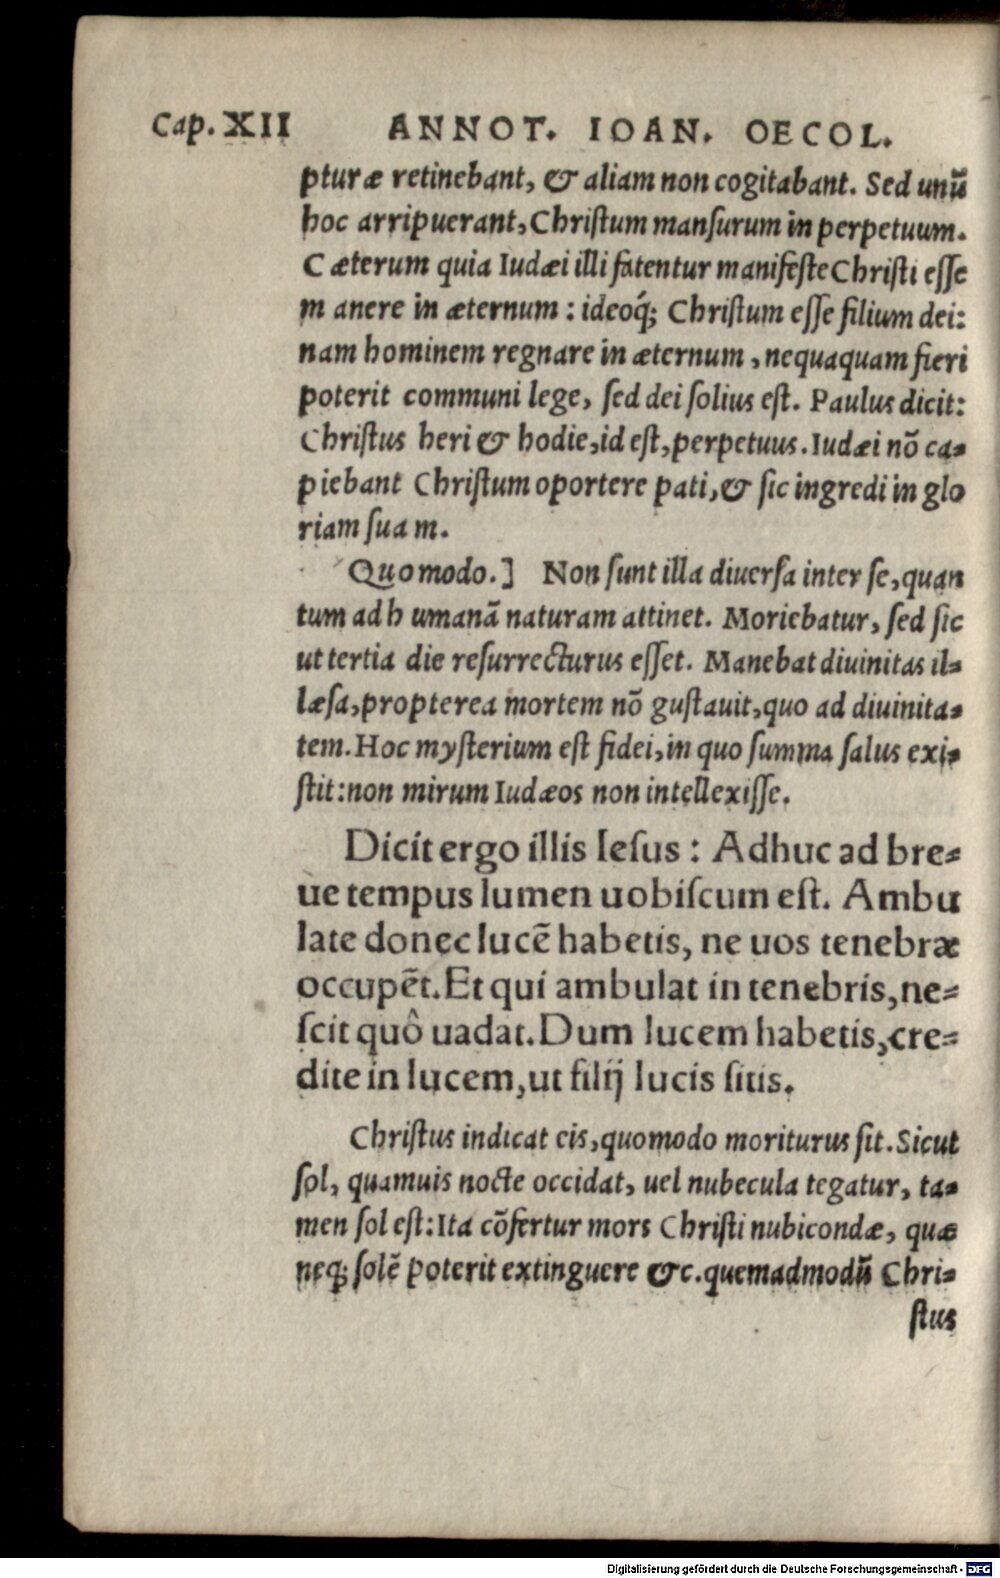 Cap. XII ANNOT. IOAN. OECOL.
pturæ retinebant, & aliam non cogitabant. Sed unū
hoc arripuerant, Chriſtum manſurum in perpetuum.
Cæterum quia Iudæi illi fatentur manifeſte Chriſti eſſe
manere in æternum : ideoq́; Chriſtum eſſe filium dei:
nam hominem regnare in æternum, nequaquam fieri
poterit communi lege, ſed dei ſolius eſt. Paulus dicit:
Chriſtus heri & hodie, id eſt, perpetuus. Iudæi nō ca⸗
piebant Chriſtum oportere pati, & ſic ingredi in glo
riam ſuam.
Quomodo.] Non ſunt illa diuerſa inter ſe, quan
tum ad humanā naturam attinet. Moriebatur, ſed ſic
ut tertia die reſurrecturus eſſet. Manebat diuinitas il⸗
læſa, propterea mortem nō guſtauit, quo ad diuinita⸗
tem. Hoc myſterium eſt fidei, in quo ſumma ſalus exi⸗
ſtit: non mirum Iudæos non intellexiſſe.
Dicit ergo illis Ieſus : Adhuc ad bre⸗
ue tempus lumen uobiſcum eſt. Ambu
late donec lucē habetis, ne uos tenebræ
occupēt. Et qui ambulat in tenebris, ne⸗
ſcit quô uadat. Dum lucem habetis, cre⸗
dite in lucem, ut filij lucis ſitis.
Chriſtus indicat eis, quomodo moriturus ſit. Sicut
ſol, quamuis nocte occidat, uel nubecula tegatur, ta⸗
men ſol eſt: Ita cōfertur mors Chriſti nubicondæ, quæ
neq; ſolē poterit extinguere &c. quemadmodū Chri⸗
ſtus
Digitalisierung gefördert durch die Deutsche Forschungsgemeinschaft - DFG